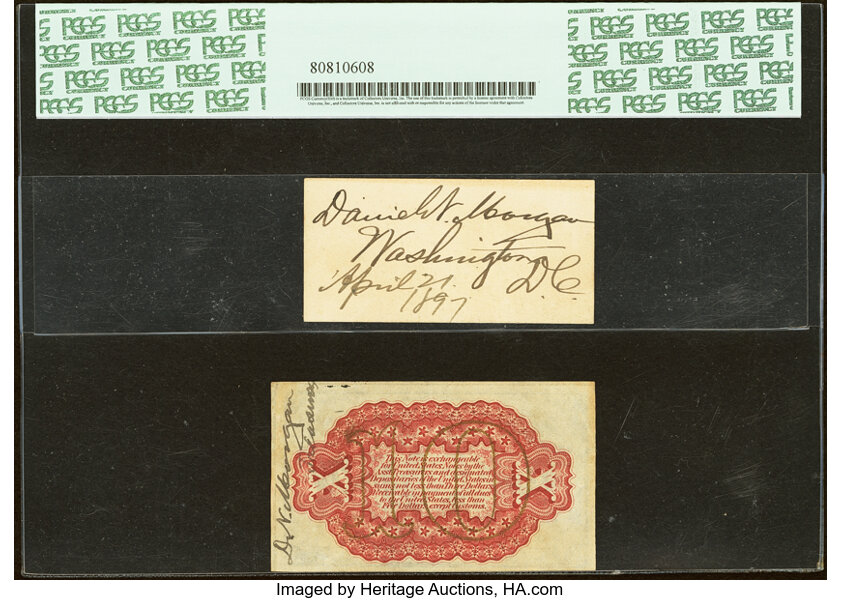 PCGS PCGS PCGS PCGS
80810608
PCGS Currency is a trademark of Collectors Universe, Inc. The use of this trademark is permitted by a license agreement with Collectors
Universe, Inc., and Collectors Universe, Inc. is not affiliated with or responsible for any actions of the licensee under that agreement.
Daniel N. Morgan
Washington
D.C.
April 21.
1897
D. N. Morgan
10
X X
This Note is exchangeable
for United States Notes by the
Asst. Treasurers and designated
Depositaries of the United States in
sums not less than Three Dollars.
Receivable in payment of all dues
to the United States less than
Five Dollars except Customs.
Imaged by Heritage Auctions, HA.com